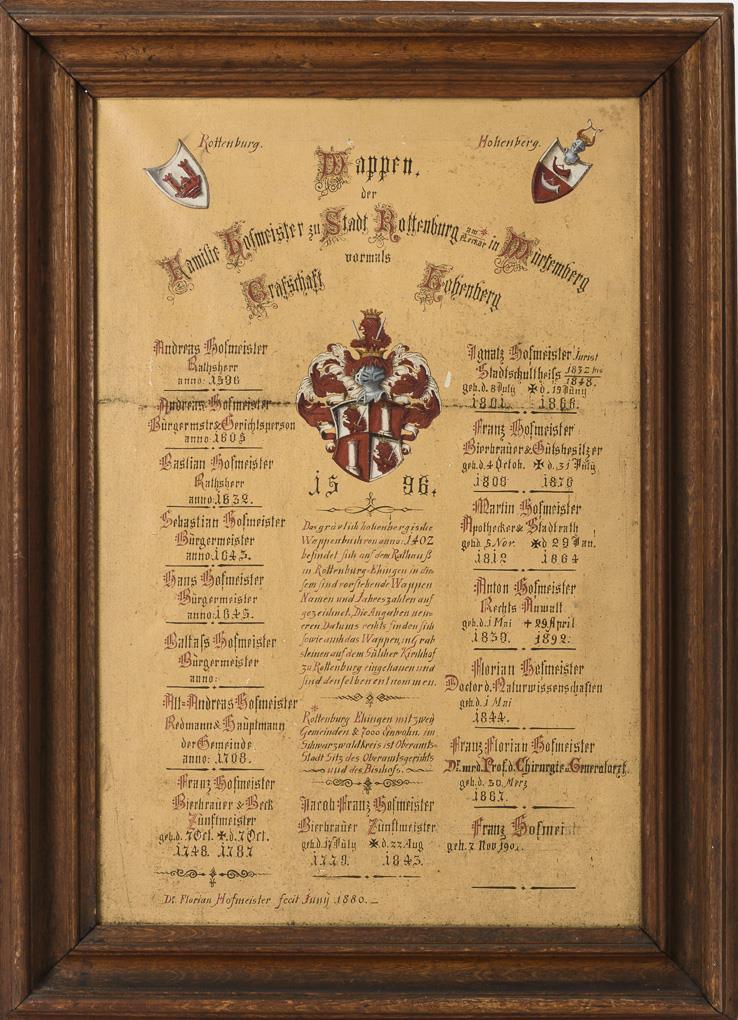 Rottenburg.
Hohenberg.
Wappen.
der
Familie Hofmeister zu Stadt Rottenburg am Neckar * in Würtemberg
vormals
Grafschaft Hohenberg
Andreas Hofmeister
Rathsherr
anno: 1596
Andreas Hofmeister
Bürgermstr & Gerichtsperson
anno: 1605
Bastian Hofmeister
Rathsherr
anno: 1632.
Sebastian Hofmeister
Bürgermeister
anno: 1643.
Hans Hofmeister
Bürgermeister
anno: 1645.
Baltass Hofmeister
Bürgermeister
anno:
Alt-Andreas Hofmeister
Redmann & Hauptmann
der Gemeinde
anno: 1708.
Franz Hofmeister
Bierbrauer & Beck
Zunftmeister
geb. d. 7 Oct. ✠ d. 7 Oct.
1748. 1787
15 96.
Das grävlich hohenbergische
Wappenbuch von anno: 1402
befindet sich auf dem Rathauß
in Rottenburg-Ehingen in die-
sem sind vorstehende Wappen
Namen und Jahreszahlen auf
gezeichnet. Die Angaben neu-
eren Datums rechts finden sich
sowie auch das Wappen, in Grab
steinen auf dem Sülcher Kirchhof
zu Rottenburg eingehauen und
sind denselben entnommen.
*
Rottenburg Ehingen mit zwey
Gemeinden & 7000 Einwohn. im
Schwarzwaldkreis ist Oberamts-
Stadt Sitz des Oberamtsgerichts
und des Bischofs.
Jacob Franz Hofmeister
Bierbrauer Zunftmeister
geb. d. 17 July ✠ d. 22 Aug
1779. 1843.
Ignatz Hofmeister Jurist
Stadtschultheiss 1832 bis 1848.
geb. d. 8 July ✠ d. 19 Juny
1801. 1866.
Franz Hofmeister
Bierbrauer & Gutsbesitzer
geb. d. 4 Octob. ✠ d. 31 July
1809 1870
Martin Hofmeister
Apothecker & Stadtrath
gebd. 5. Nov. ✠ d 29 Jan.
1812 1864
Anton Hofmeister
Rechts Anwalt
geb. d. 1 Mai + 29. April
1839. 1892.
Florian Hofmeister
Doctor d. Naturwissenschaften
geb. d. 1 Mai
1844.
Franz Florian Hofmeister
Dr. med. Prof. d. Chirurgie u. Generalarzt.
geb. d. 30 Merz
1867.
Franz Hofmeist
geb. 7 Nov
Dr. Florian Hofmeister fecit Junij 1880.